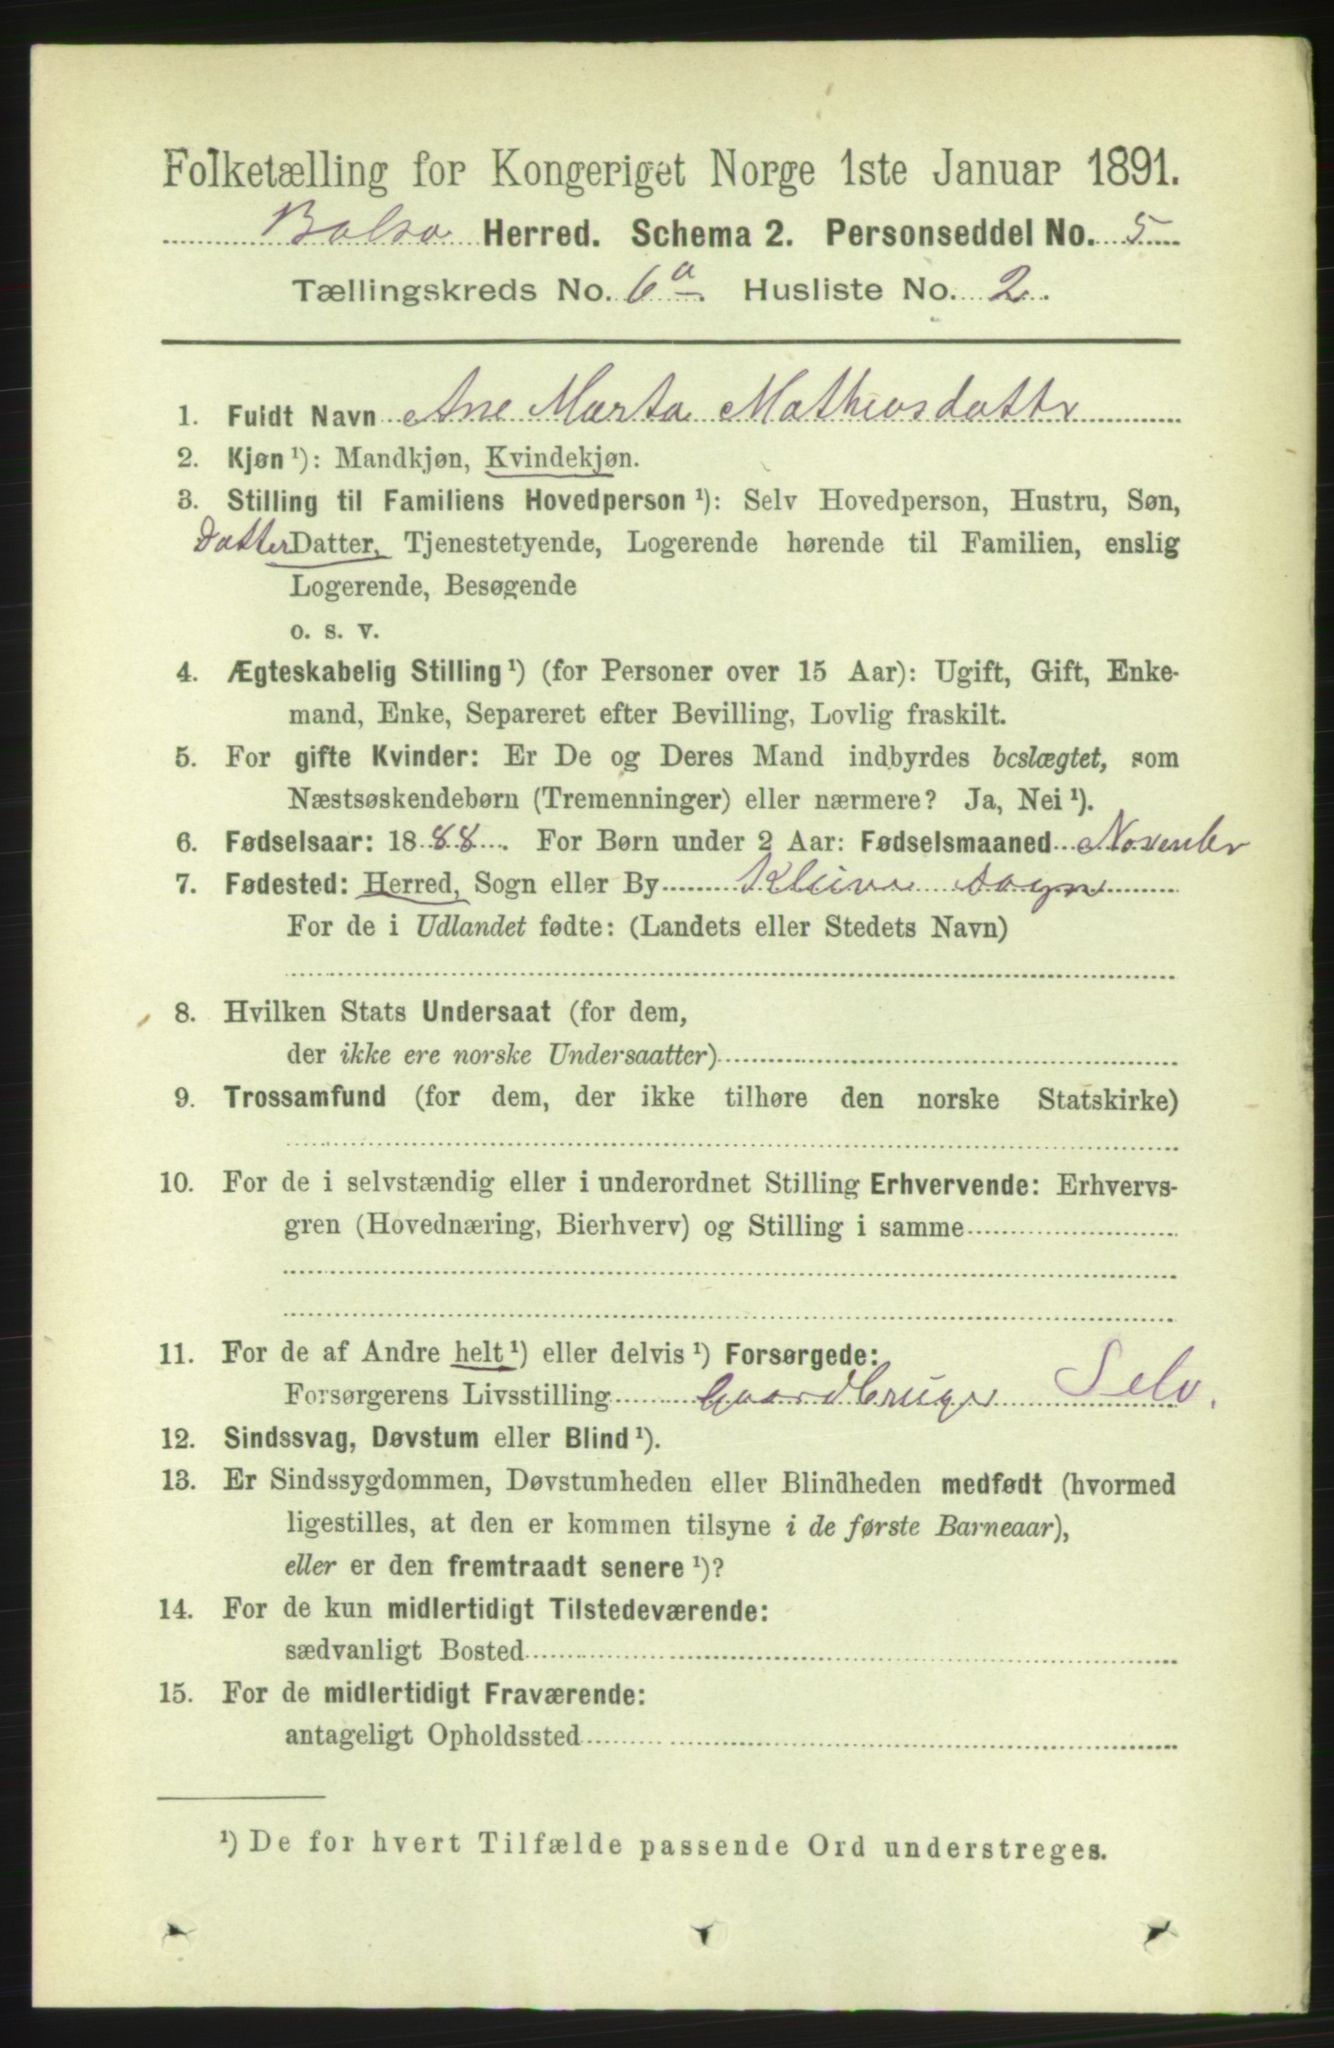 Folketælling for Kongeriget Norge 1ste Januar 1891.
Bolsø Herred. Schema 2. Personseddel No. 5
Tællingskreds No. 6a Husliste No. 2.
1. Fuldt Navn Ane Marta Mathiasdattr
2. Kjøn¹): Mandkjøn, Kvindekjøn.
3. Stilling til Familiens Hovedperson¹): Selv Hovedperson, Hustru, Søn,
datter Datter, Tjenestetyende, Logerende hørende til Familien, enslig
Logerende, Besøgende
o. s. v.
4. Ægteskabelig Stilling¹) (for Personer over 15 Aar): Ugift, Gift, Enke-
mand, Enke, Separeret efter Bevilling, Lovlig fraskilt.
5. For gifte Kvinder: Er De og Deres Mand indbyrdes beslægtet, som
Næstsøskendebørn (Tremenninger) eller nærmere? Ja, Nei¹).
6. Fødselsaar: 1888. For Børn under 2 Aar: Fødselsmaaned November
7. Fødested: Herred, Sogn eller By Kleive sogn
For de i Udlandet fødte: (Landets eller Stedets Navn)
8. Hvilken Stats Undersaat (for dem,
der ikke ere norske Undersaatter)
9. Trossamfund (for dem, der ikke tilhøre den norske Statskirke)
10. For de i selvstændig eller i underordnet Stilling Erhvervende: Erhvervs-
gren (Hovednæring, Bierhverv) og Stilling i samme
11. For de af Andre helt¹) eller delvis¹) Forsørgede:
Forsørgerens Livsstilling Gaardbruger Selv.
12. Sindssvag, Døvstum eller Blind¹).
13. Er Sindssygdommen, Døvstumheden eller Blindheden medfødt (hvormed
ligestilles, at den er kommen tilsyne i de første Barneaar),
eller er den fremtraadt senere¹)?
14. For de kun midlertidigt Tilstedeværende:
sædvanligt Bosted
15. For de midlertidigt Fraværende:
antageligt Opholdssted
¹) De for hvert Tilfælde passende Ord understreges.